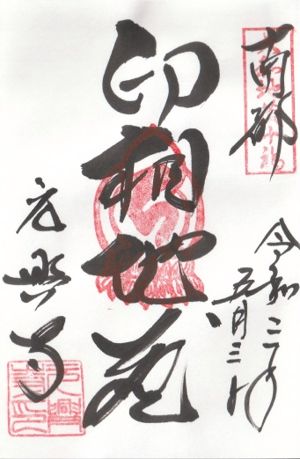 南都
印相地蔵
元興寺
令和二年
五月三日